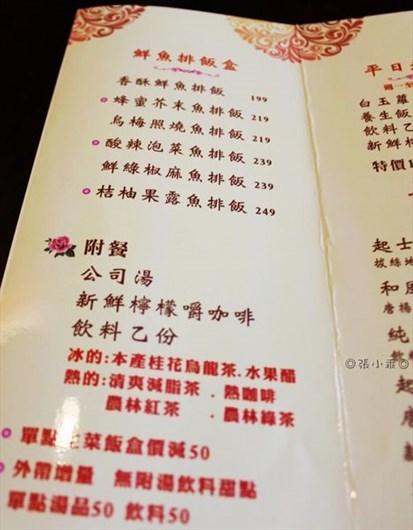 鮮魚排飯盒
香酥鮮魚排飯 199
蜂蜜芥末魚排飯 219
烏梅照燒魚排飯 219
酸辣泡菜魚排飯 239
鮮綠椒麻魚排飯 239
桔柚果露魚排飯 249
附餐
公司湯
新鮮檸檬嚼咖啡
飲料乙份
冰的:本產桂花烏龍茶.水果醋
熱的:清爽減脂茶 . 熱咖啡
農林紅茶 . 農林綠茶
單點主菜飯盒價減50
外帶增量 無附湯飲料甜點
單點湯品50 飲料50
平日
週一
白玉蘿
養生飯
飲料乙
新鮮檸
特價1
起士
拔絲地
和風
唐揚
◎張小乖◎